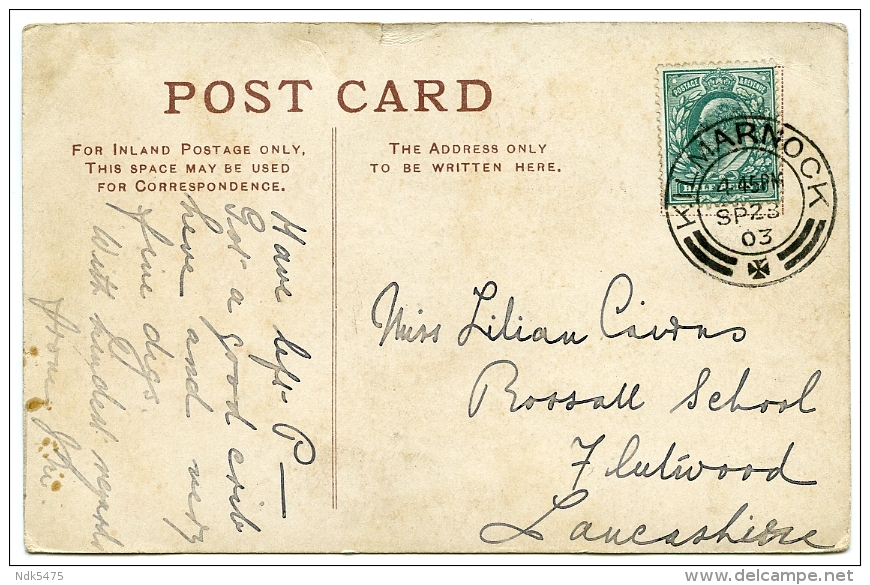 POST CARD
FOR INLAND POSTAGE ONLY,
THIS SPACE MAY BE USED
FOR CORRESPONDENCE.
THE ADDRESS ONLY
TO BE WRITTEN HERE.
POSTAGE REVENUE
HALF
KILMARNOCK
4.45PM
SP23
03
Have left P—
Got a good crib
here and very
fine digs.
With kindest regards
from
Miss Lilian Cairns
Rossall School
Fleetwood
Lancashire
Ndk5475
delcampe.net